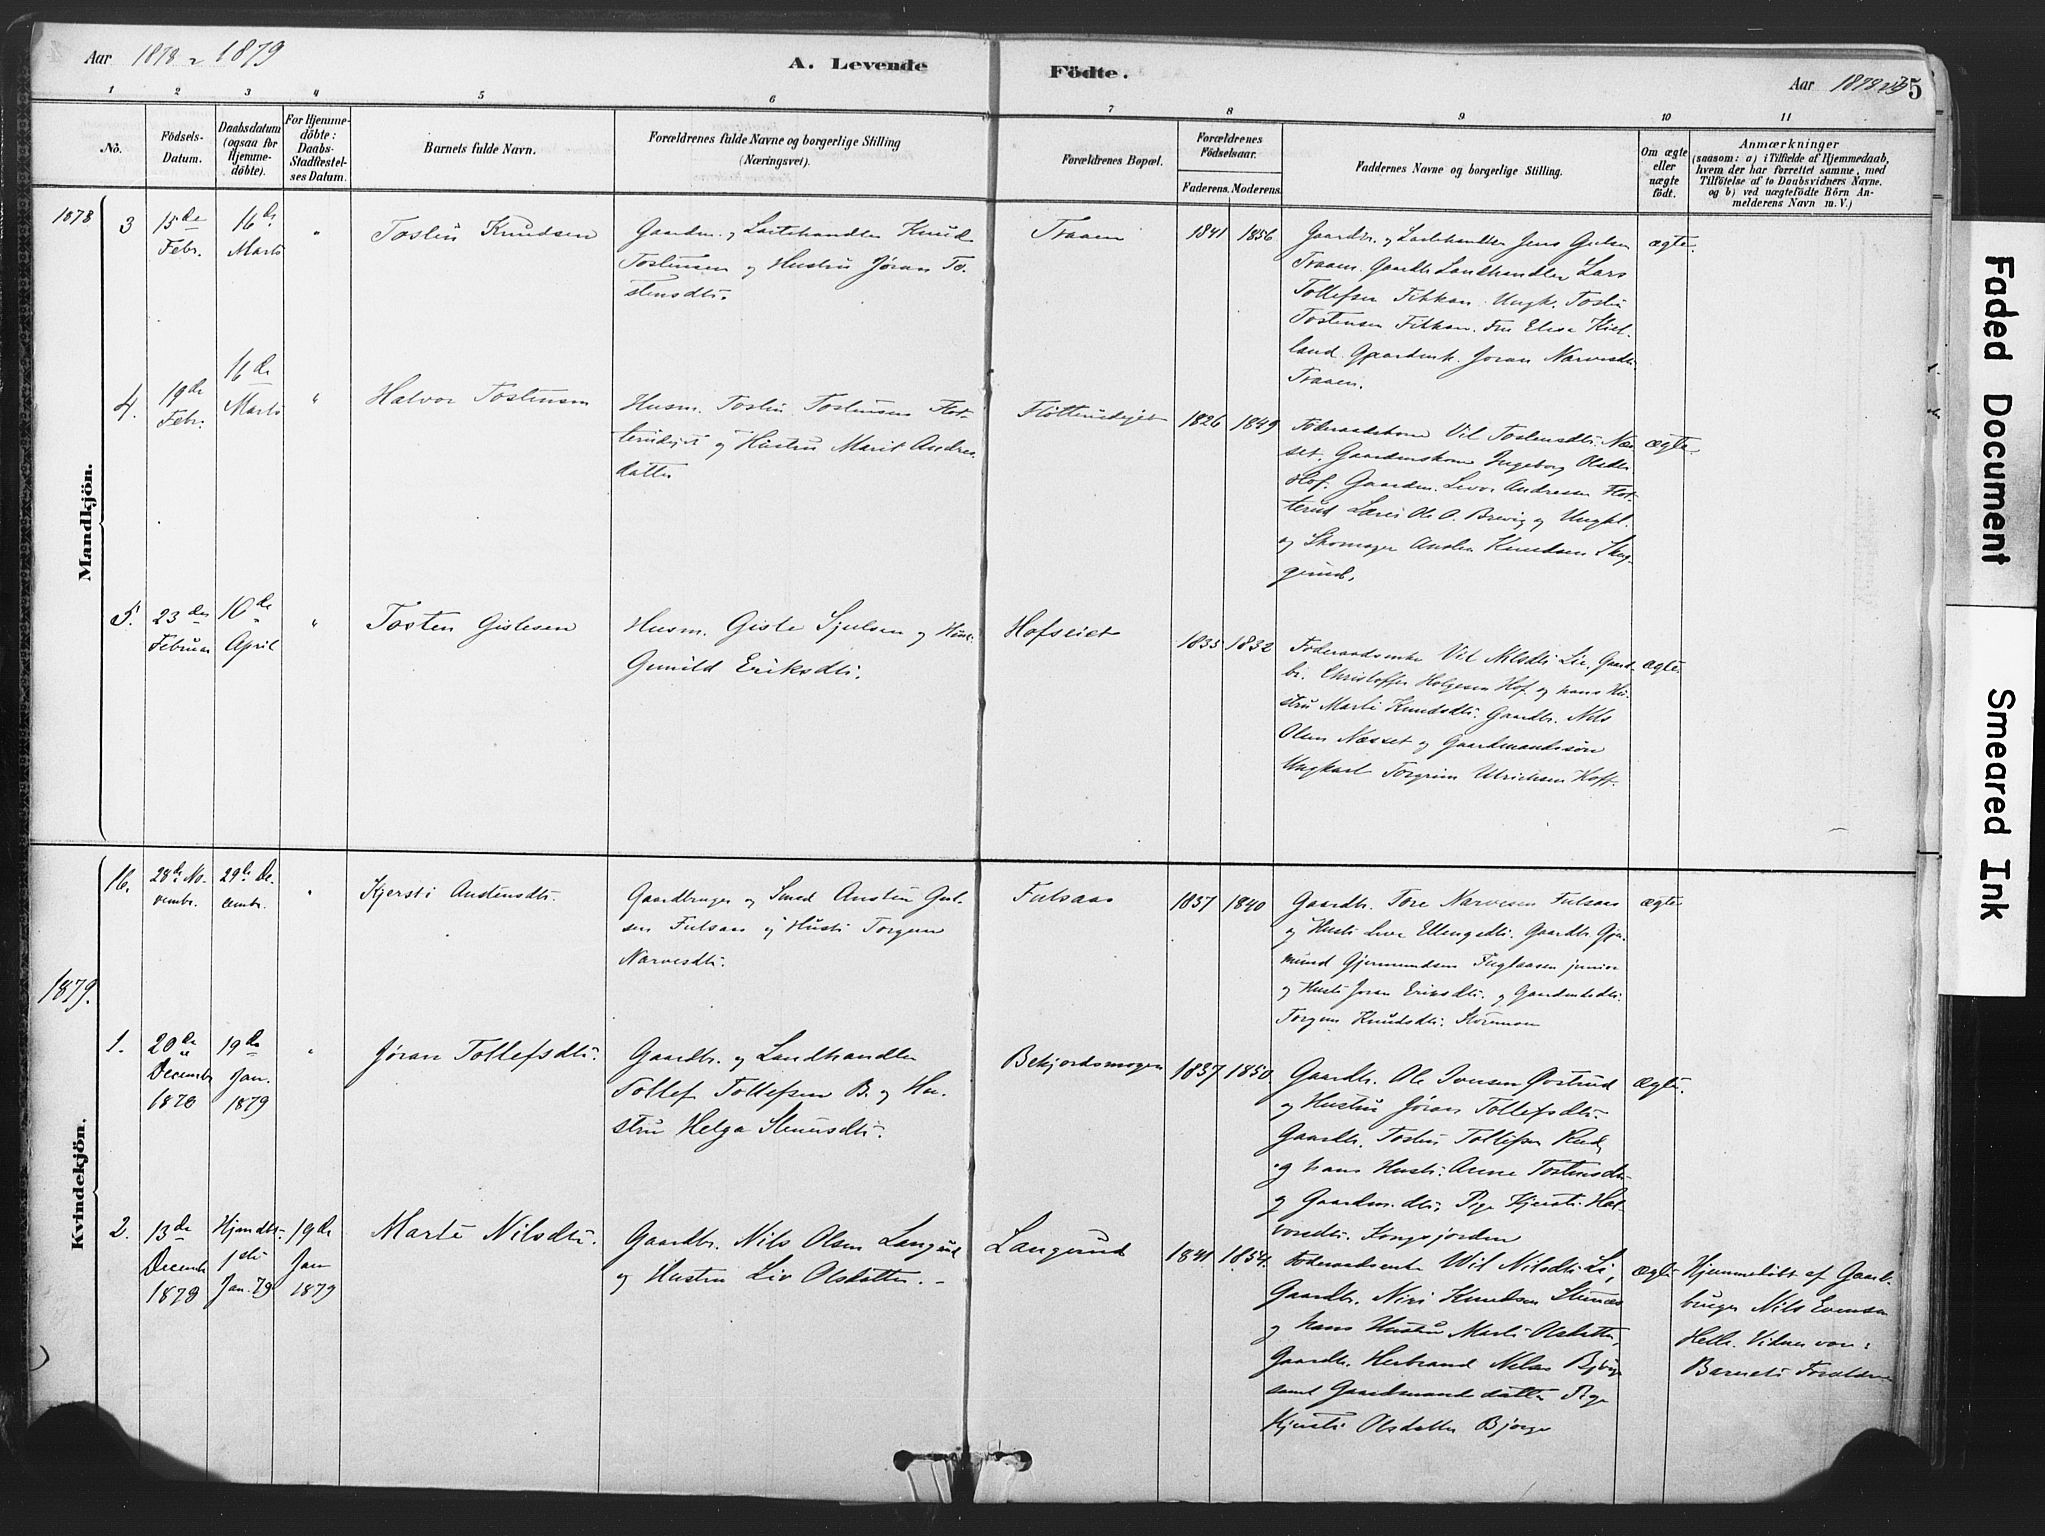 Aar 1878 & 1879
A. Levende
Födte.
Aar 1878
5
1 2 3 4 5 6 7 8 9 10 11
No.
Födsels-
Datum.
Daabsdatum
(ogsaa for
Hjemme-
döbte).
For Hjemme-
döbte:
Daabs-
Stadfæstel-
ses Datum.
Barnets fulde Navn.
Forældrenes fulde Navne og borgerlige Stilling
(Næringsvei).
Forældrenes Bopæl.
Forældrenes
Födselsaar.
Faderens. Moderens.
Faddernes Navne og borgerlige Stilling.
Om ægte
eller
uægte
födt.
Anmærkninger
(saasom: a) i Tilfælde af Hjemmedaab,
hvem der har forrettet samme, med
Tilföielse af to Daabsvidners Navne.
og b) ved uægtefödte Börn An-
melderens Navn m.V.)
Mandkjön.
1878
3
15de
Febr.
16de
Marts
"
Tostén Knudsen
Gaardm. og Lastehandler Knud
Tostensen og Hustru Jøran To-
stensdtr.
Traaen
1841 1856
Gaardbr. og Lastehandler Jens Gulsen
Traaen. Gaardbr. Landhandler Lars
Tollefsen Fikkan. Ungk. Tosten
Tostensen Fikkan. Fru Elisa Kiel-
land. Gaardenk. Joran Narvesdtr.
Traaen.
ægte.
4.
19de
Febr.
16de
Marts
"
Halvor Tostensen
Husm. Tosten Tostensen Flot-
terudejet og Hustru Marit Andreas-
datter
Flotterudejet
1826 1849
Föderaadskone Vil Tostensdtr. Næs-
set. Gaardmskone Ingeborg Olsdtr
Hof. Gaardm. Levor Andreasen Flot-
terud Lærer Ole O. Brevig og Ungkl.
og Skomager Ansten Knudsen Skug-
gerud.
ægte.
5.
23de
Februar
10de
April
"
Tosten Gislesen
Husm. Gisle Sjulsen og Hust.
Gunild Eriksdtr.
Hofseiet
1835 1832
Föderaadsenke Vil Nilsdtr Lie. Gaard-
br. Christoffer Helgesen Hof og hans Hu-
stru Marte Knudsdtr. Gaardbr. Nils
Olsen Næsset og Gaardmandssön
Ungkarl Torgrim Ulrichsen Hoff.
ægte.
Kvindekjön.
16.
28de No-
vembr.
29de De-
cembr.
"
Kjersti Anstensdtr.
Gaardbruger og Smed Ansten Gul-
sen Fulsaas og Hustr Torgun
Narvesdtr.
Fulsaas
1837 1840
Gaardbr. Tore Narvesen Fulsaas
og Hustr Live Ellengsdtr. Gaardbr. Gjer-
mund Gjermundsen Fuglaasen junior
og Hustr Joran Eriksdtr. og Gaardmdsdtr.
Torgun Knudsdtr. Storemoen
ægte
1879.
1.
20de
Decembr
1878
19de
Jan.
1879
"
Jøran Tollefsdtr.
Gaardbr. og Landhandler
Tollef Tollefsen B. og Hu-
stru Helga Steensdtr.
Bekjordsmogen
1837 1850.
Gaardbr. Ole Iversen Øvstrud
og Hustru Jøran Tollefsdtr.
Gaardbr. Tosten Tollefsen Rud
og hans Hustr: Anne Tostensdtr
og Gaardm.dtr, Pige Kjersti Hal-
vorsdtr. Kongsjorden
ægte.
2.
13de
Decembr
1878
Hjemdbt.
1ste
Jan. 79
19de
Jan
1879
Marte Nilsdtr.
Gaardbr. Nils Olsen Langerud
og Hustru Liv Olsdatter.
Langerud
1841 1854.
Föderaadsenke Wil Nilsdtr Li,
Gaardbr. Niri Knudsen Stenaas
og hans Hustru Marte Olsdatter,
Gaardbr. Herbrand Nilsen Bjørge
samt Gaardmandsdatter Pige
Kjersti Olsdatter Bjørge
ægte
Hjemmedöbt af Gaard-
bruger Nils Evensen
Helle. Vidner var:
Barnets Forældre
Faded Document
Smeared Ink